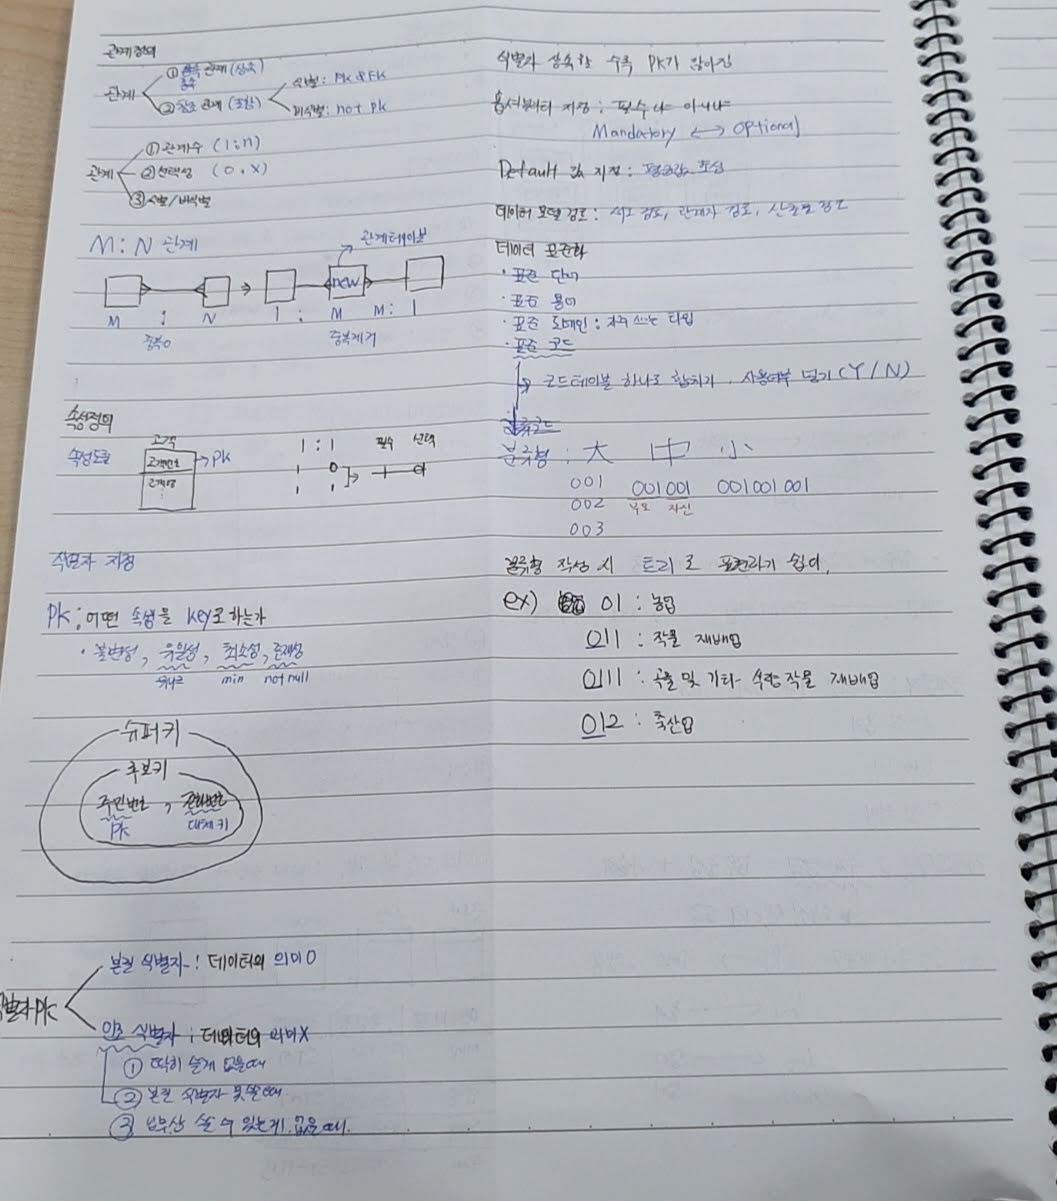 관계정의
관계
① 종속 관계 (상속)
② 참조 관계 (조합)
식별: PK & FK
비식별: not PK
관계
① 관계수 (1:n)
② 선택성 (O, X)
③ 식별/비식별
M:N 관계
관계테이블
new
M : N
1 : M M : 1
중복O
중복제거
속성정의
속성도출
고객
고객번호
고객명
→PK
1 : 1
필수 선택
식별자 지정
PK : 어떤 속성을 key로 하는가
· 불변성, 유일성, 최소성, 존재성
유니크 min not null
슈퍼키
후보키
주민번호, 전화번호
PK 대체키
식별자PK
본질 식별자 : 데이터의 의미 O
인조 식별자 : 데이터의 의미X
① 딱히 쓸게 없을때
② 본질 식별자 못쓸때
③ 쓸 수 있는게 없을때.
식별자 상속할 수록 PK가 많아짐
옵셔널리티 지정 : 필수냐 아니냐
Mandatory ↔ Optional
Default 값 지정 :
데이터 모델 검토 :
데이터 표준화
· 표준 단어
· 표준 용어
· 표준 도메인 : 자주 쓰는 타입
· 표준 코드
코드테이블 하나로 합치기, 사용여부 넣기 (Y/N)
분류형 : 大 中 小
001 001001 001001001
002 부모 자신
003
분류형 작성 시 트리로 표현하기 쉽게.
ex) 01 : 농업
011 : 작물 재배업
0111 : 곡물 및 기타 식량 작물 재배업
012 : 축산업